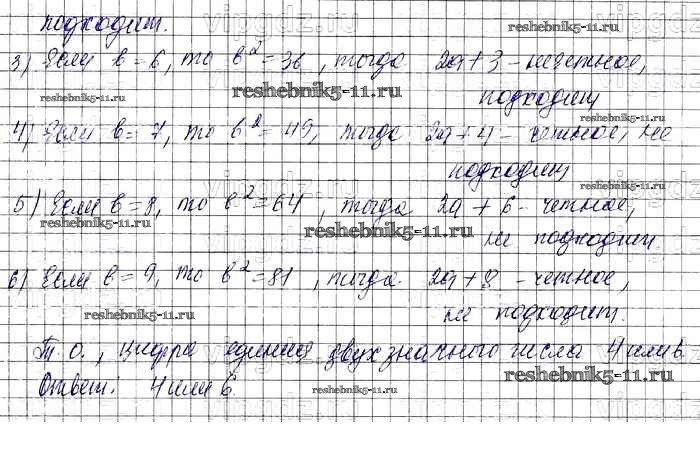 подходит.
3) Если b=6, то b²=36, тогда 2a+3 - нечетное,
подходит
4) Если b=7, то b²=49, тогда 2a+4 - четное, не
подходит
5) Если b=8, то b²=64, тогда 2a+6 - четное,
не подходит.
6) Если b=9, то b²=81, тогда 2a+8 - четное,
не подходит.
Т.о., цифра единиц двухзначного числа 4 или 6.
Ответ. 4 или 6.
reshebnik5-11.ru
reshebnik5-11.ru
reshebnik5-11.ru
reshebnik5-11.ru
reshebnik5-11.ru
reshebnik5-11.ru
reshebnik5-11.ru
reshebnik5-11.ru
reshebnik5-11.ru
reshebnik5-11.ru
vipgdz.ru